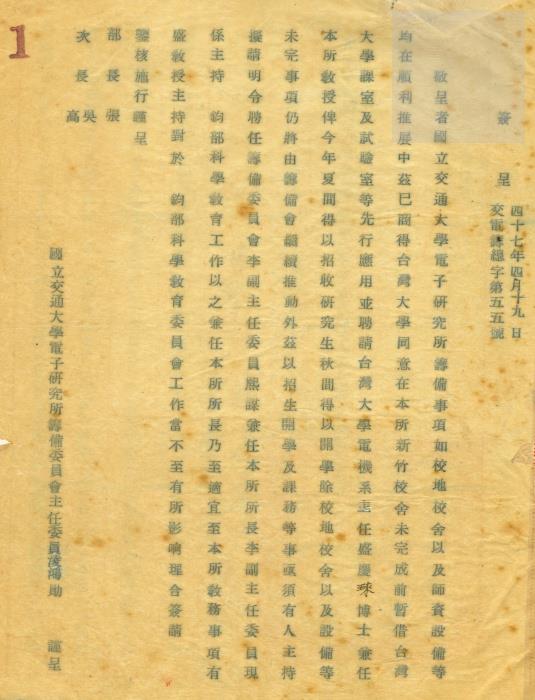 簽呈
四十七年四月十九日
交電籌總字第五五號
敬呈者國立交通大學電子研究所籌備事項如校地校舍以及師資設備等
均在順利推展中茲已商得台灣大學同意在本所新竹校舍未完成前暫借台灣
大學課室及試驗室等先行應用並聘請台灣大學電機系主任盛慶琜博士兼任
本所教授俾今年夏間得以招收研究生秋間得以開學除校地校舍以及設備等
未完事項仍將由籌備會繼續推動外茲以招生開學及課務等事亟須有人主持
擬請明令聘任籌備委員會李副主任委員熙謀兼任本所所長李副主任委員現
係主持 鈞部科學教育工作以之兼任本所所長乃至適宜至本所教務事項有
盛教授主持對於 鈞部科學教育委員會工作當不至有所影响理合簽請
鑒核施行謹呈
部長張
次長吳
高
國立交通大學電子研究所籌備委員會主任委員凌鴻勛 謹呈
1